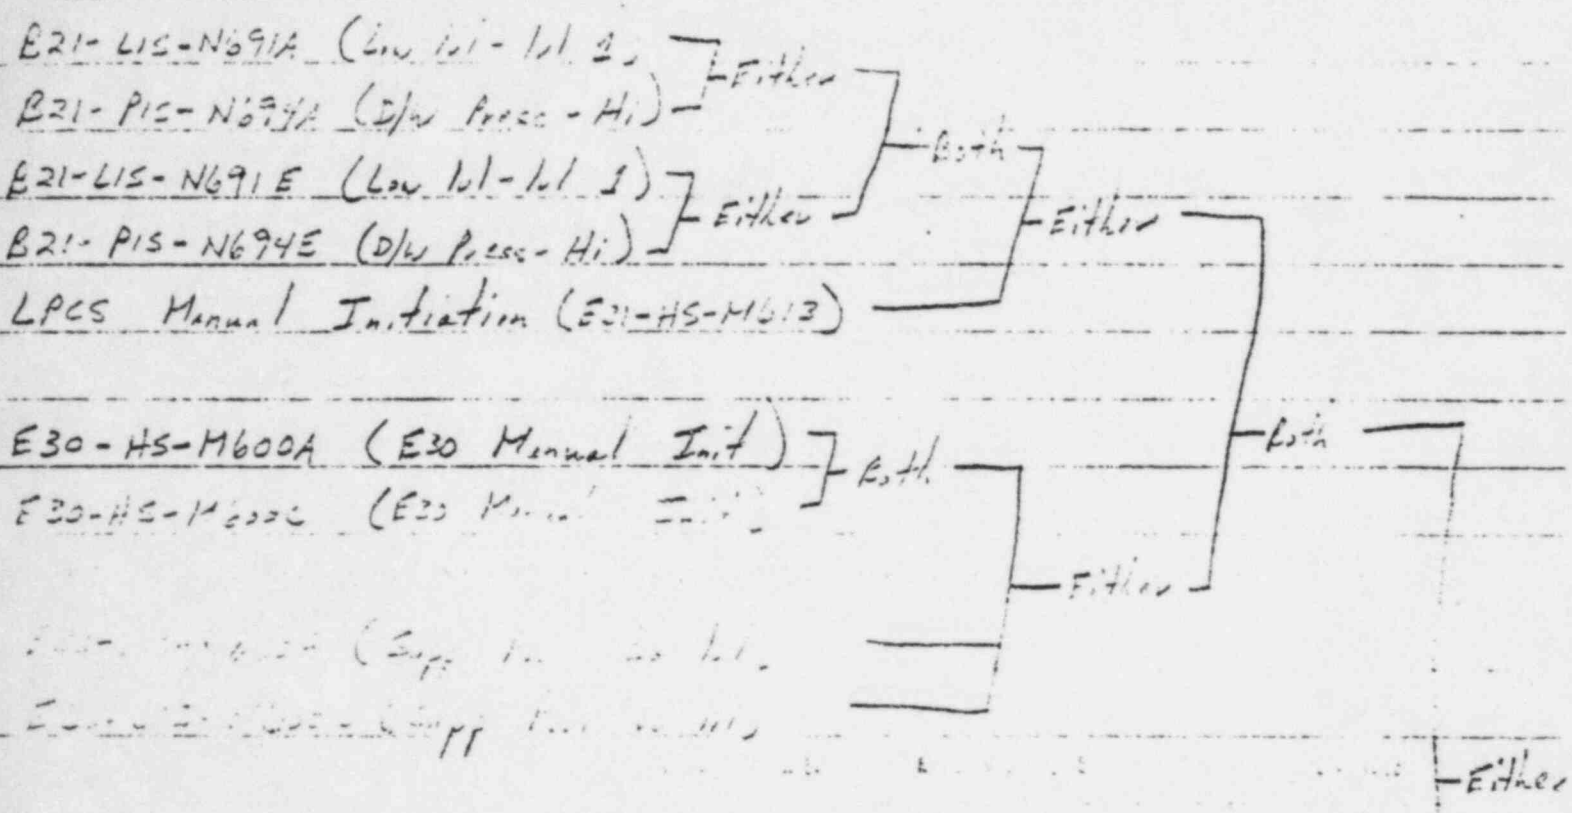 B21-LIS-N691A (Low lvl-lvl 1)
Either
B21-PIS-N694A (D/W Press-Hi)
Both
B21-LIS-N691E (Low lvl-lvl 1)
Either
Either
B21-PIS-N694E (D/W Press-Hi)
LPCS Manual Initiation (E21-HS-M613)
E30-HS-M600A (E30 Manual Init)
Both
Both
E30-HS-M600C (E30 Manual Init)
Either
(Supp
Supp
Either